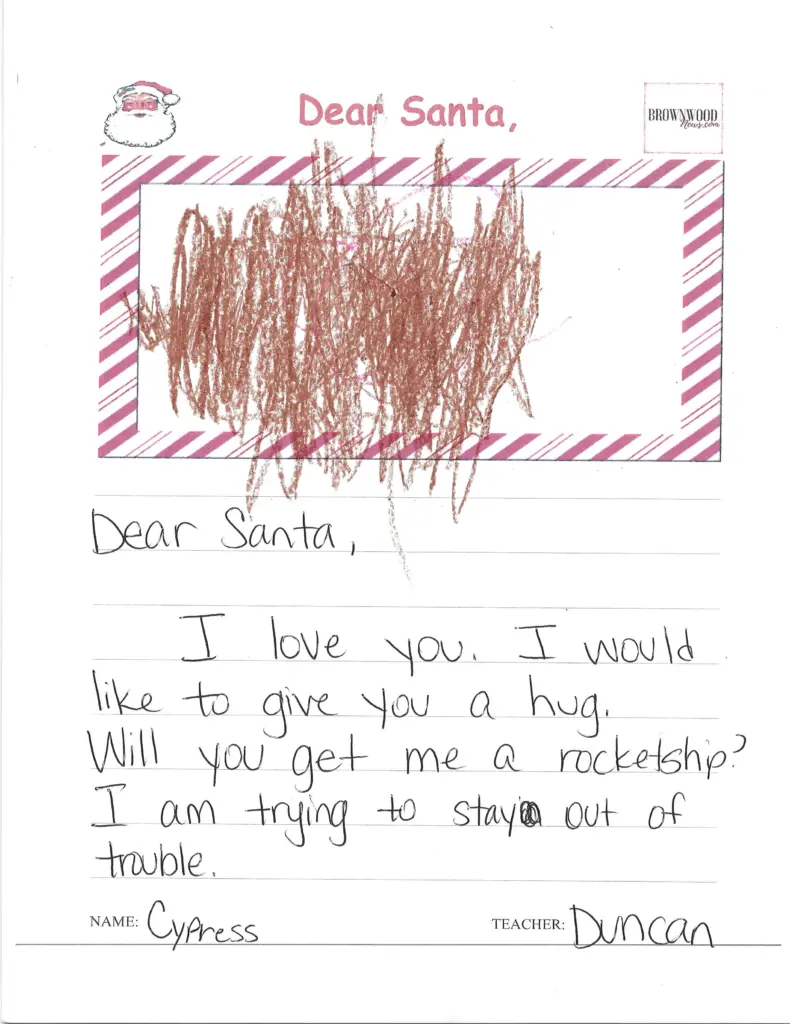 Dear Santa,
BROWNWOOD
News.com
Dear Santa,
I love you. I would
like to give you a hug.
Will you get me a rocketship?
I am trying to stay out of
trouble.
NAME: Cypress TEACHER: Duncan